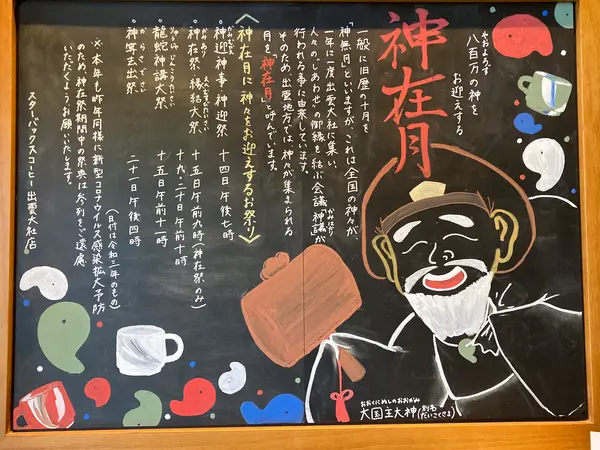 神在月
やおよろず
八百万の神を
お迎えする
一般に旧歴の十月を
「神無月」といいますが、これは全国の神々が、
一年に一度出雲大社に集い、
人々の"しあわせ"の御縁を結ぶ会議「神議」が
かみはかり
行われる事に由来しています。
そのため出雲地方では、神々が集まられる
月を「神在月」と呼んでいます。
〈神在月に神々をお迎えするお祭り〉
神迎神事・神迎祭 十四日午後七時
神在祭・縁結大祭 十五日午前九時(神在祭のみ)
十九、二十日午前十時
龍蛇神講大祭 十五日午前十一時
神等去出祭 二十一日午後四時
からさでさい
(日付は令和三年のもの)
※本年も昨年同様に新型コロナウイルス感染拡大予防
のため、神在祭期間中の祭典は参列をご遠慮
いただくようお願いいたします。
スターバックスコーヒー出雲大社店
おおくにぬしのおおかみ
大国主大神(別名だいこくさま)